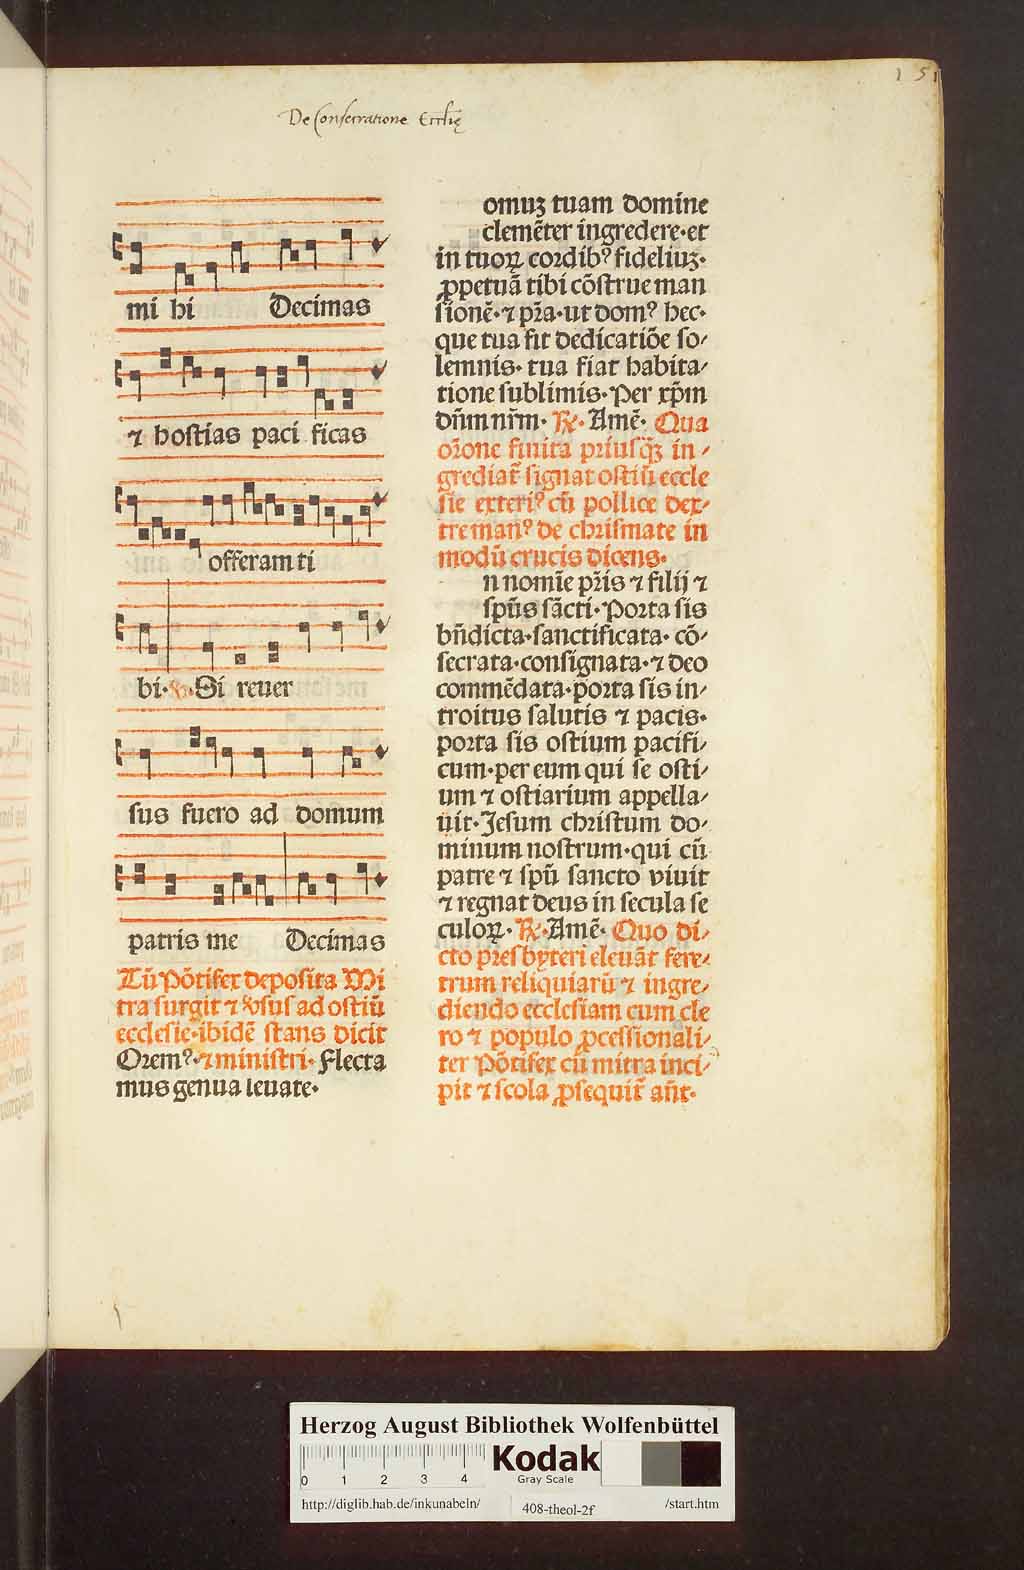 151
De Consecratione Eccłię
mi hi Decimas
⁊ hostias paci ficas
offeram ti
bi· ℣· Si reuer
sus fuero ad domum
patris me Decimas
Tū Põtifex deposita Mi
tra surgit ⁊ ꝟsus ad ostiū
ecclesie·ibidē stans dicit
Oremꝰ·⁊ ministri· Flecta
mus genua leuate·
omuꝫ tuam domine
clemēter ingredere·et
in tuoꝝ cordibꝰ fideliuꝫ·
ꝓpetuã tibi cõstrue man
sionē·⁊ p̃ra·ut domꝰ hec·
que tua fit dedicatiõe so⸗
lemnis· tua fiat habita⸗
tione sublimis· Per xp̃m
dñm nr̃m· ℟· Amē· Qua
or̃one finita priusq̃ꝫ in⸗
grediat̃ signat ostiū eccle
sie exteriꝰ cū pollice dex⸗
tre manꝰ de chrismate in
modū crucis dicens·
n nomīe pr̃is ⁊ filij ⁊
sp̃us sãcti· Porta sis
bñdicta·sanctificata· cõ⸗
secrata·consignata·⁊ deo
commēdata·porta sis in⸗
troitus salutis ⁊ pacis·
porta sis ostium pacifi⸗
cum·per eum qui se osti⸗
um ⁊ ostiarium appella⸗
uit· Jesum christum do⸗
minum nostrum·qui cū
patre ⁊ sp̃u sancto viuit
⁊ regnat deus in secula se
culoꝝ· ℟· Amē· Quo di⸗
cto presbyteri eleuãt fere⸗
trum reliquiarū ⁊ ingre⸗
diendo ecclesiam cum cle
ro ⁊ populo ꝓcessionali⸗
ter Põtifex cū mitra inci⸗
pit ⁊ scola ꝓsequit̃ añt·
Herzog August Bibliothek Wolfenbüttel
0 1 2 3 4
Kodak
Gray Scale
http://diglib.hab.de/inkunabeln/ 408-theol-2f /start.htm